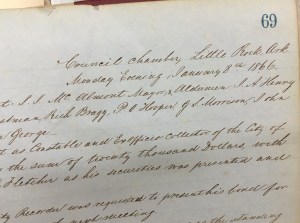 69
Council Chamber, Little Rock Ark
Monday Evening January 8th 1866.
J. J. McAlmont Mayor, Aldermen S. A. Henry
Rich Bragg, P. O Hooper, G. S. Morrison, John
George
as Constable and Ex Officio Collector of the City of
in the sum of twenty thousand Dollars, with
Fletcher as his securities was presented and
Recorder was requested to present his bond for
next meeting
the standing